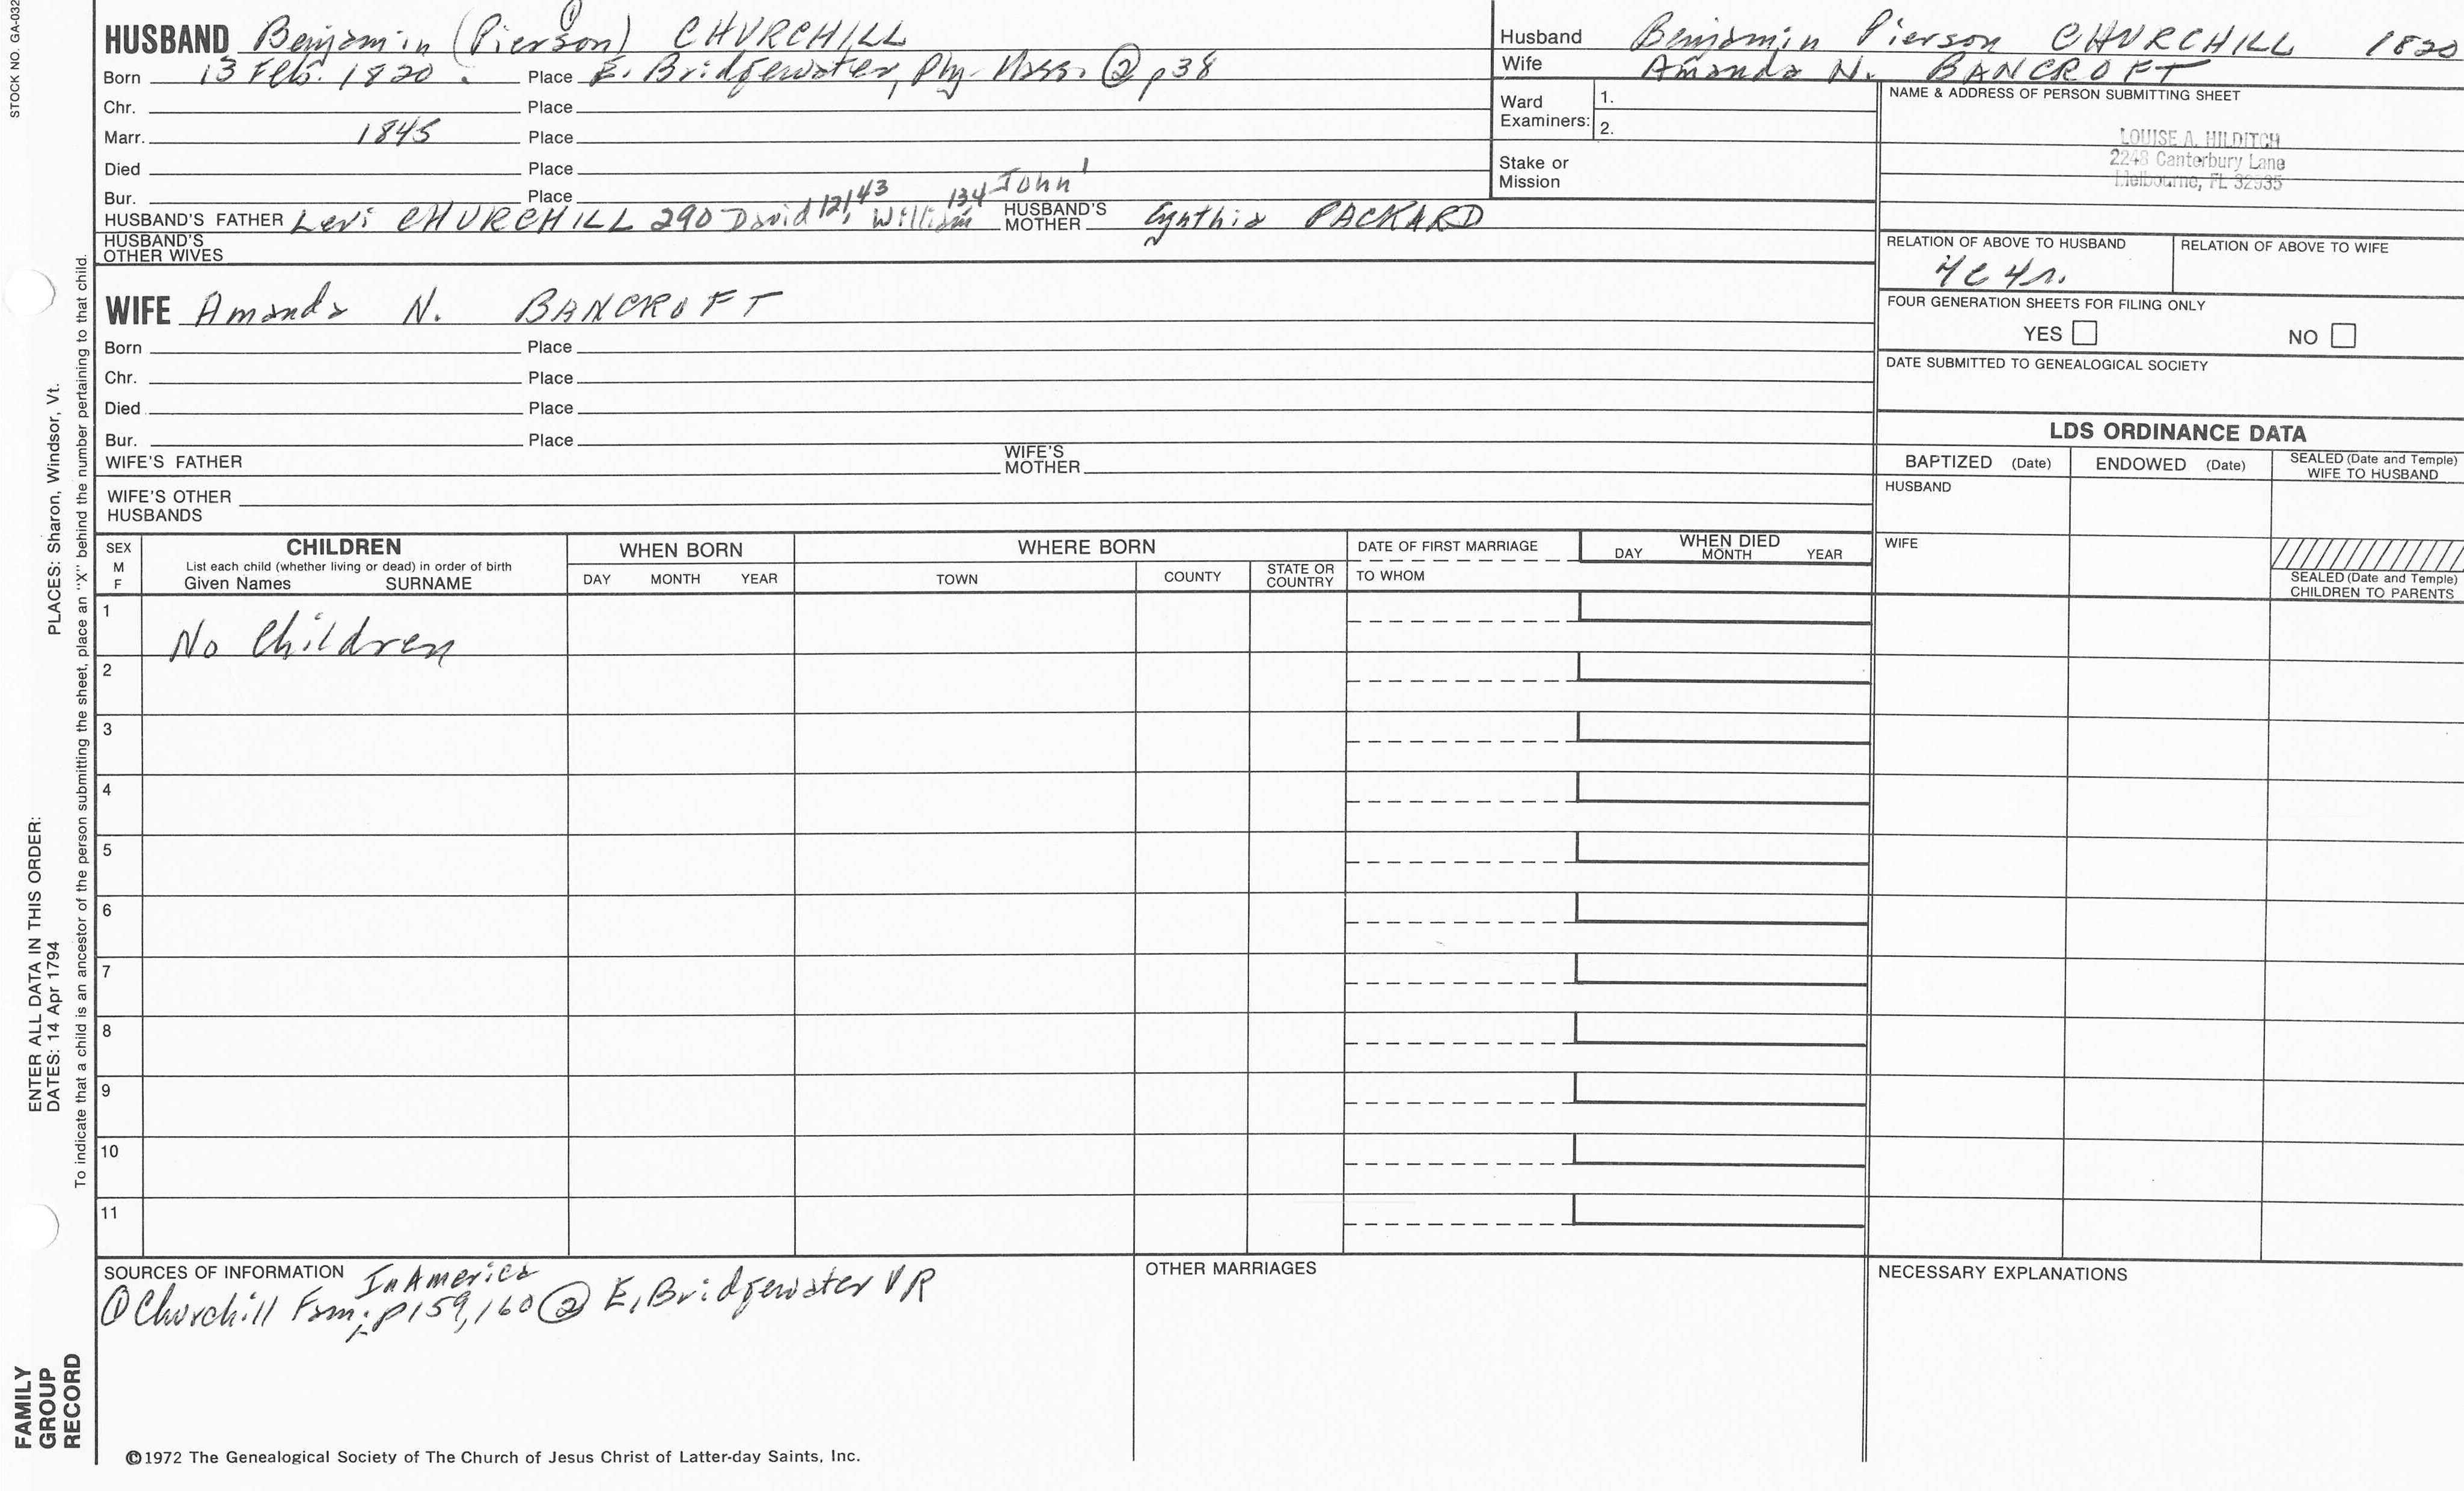 STOCK NO. GA-032
①
HUSBAND Benjamin (Pierson) CHURCHILL
Born 13 Feb. 1820. Place E. Bridgewater, Ply- Mass. ② p38
Chr. Place
Marr. 1845 Place
Died Place
Bur. Place
HUSBAND'S FATHER Levi CHURCHILL 290 David 121, 43 William 134 John 1 HUSBAND'S MOTHER Cynthia PACKARD
HUSBAND'S OTHER WIVES
Husband Benjamin Pierson CHURCHILL 1820
Wife Amanda N. BANCROFT
Ward Examiners: 1.
2.
Stake or Mission
NAME & ADDRESS OF PERSON SUBMITTING SHEET
LOUISE A. HILDITCH
2248 Canterbury Lane
Melbourne, FL 32935
RELATION OF ABOVE TO HUSBAND RELATION OF ABOVE TO WIFE
4c4r.
FOUR GENERATION SHEETS FOR FILING ONLY
YES NO
DATE SUBMITTED TO GENEALOGICAL SOCIETY
WIFE Amanda N. BANCROFT
Born Place
Chr. Place
Died Place
Bur. Place
WIFE'S FATHER WIFE'S MOTHER
WIFE'S OTHER HUSBANDS
LDS ORDINANCE DATA
BAPTIZED (Date) ENDOWED (Date) SEALED (Date and Temple) WIFE TO HUSBAND
HUSBAND
WIFE
SEALED (Date and Temple)
CHILDREN TO PARENTS
SEX
M
F
CHILDREN
List each child (whether living or dead) in order of birth
Given Names SURNAME
WHEN BORN
DAY MONTH YEAR
WHERE BORN
TOWN COUNTY STATE OR COUNTRY
DATE OF FIRST MARRIAGE
TO WHOM
WHEN DIED
DAY MONTH YEAR
1 No Children
2
3
4
5
6
7
8
9
10
11
SOURCES OF INFORMATION In America
① Churchill Fam; p159,160 ② E. Bridgewater VR
OTHER MARRIAGES
NECESSARY EXPLANATIONS
©1972 The Genealogical Society of The Church of Jesus Christ of Latter-day Saints, Inc.
ENTER ALL DATA IN THIS ORDER:
DATES: 14 Apr 1794 PLACES: Sharon, Windsor, Vt.
To indicate that a child is an ancestor of the person submitting the sheet, place an "X" behind the number pertaining to that child.
FAMILY
GROUP
RECORD